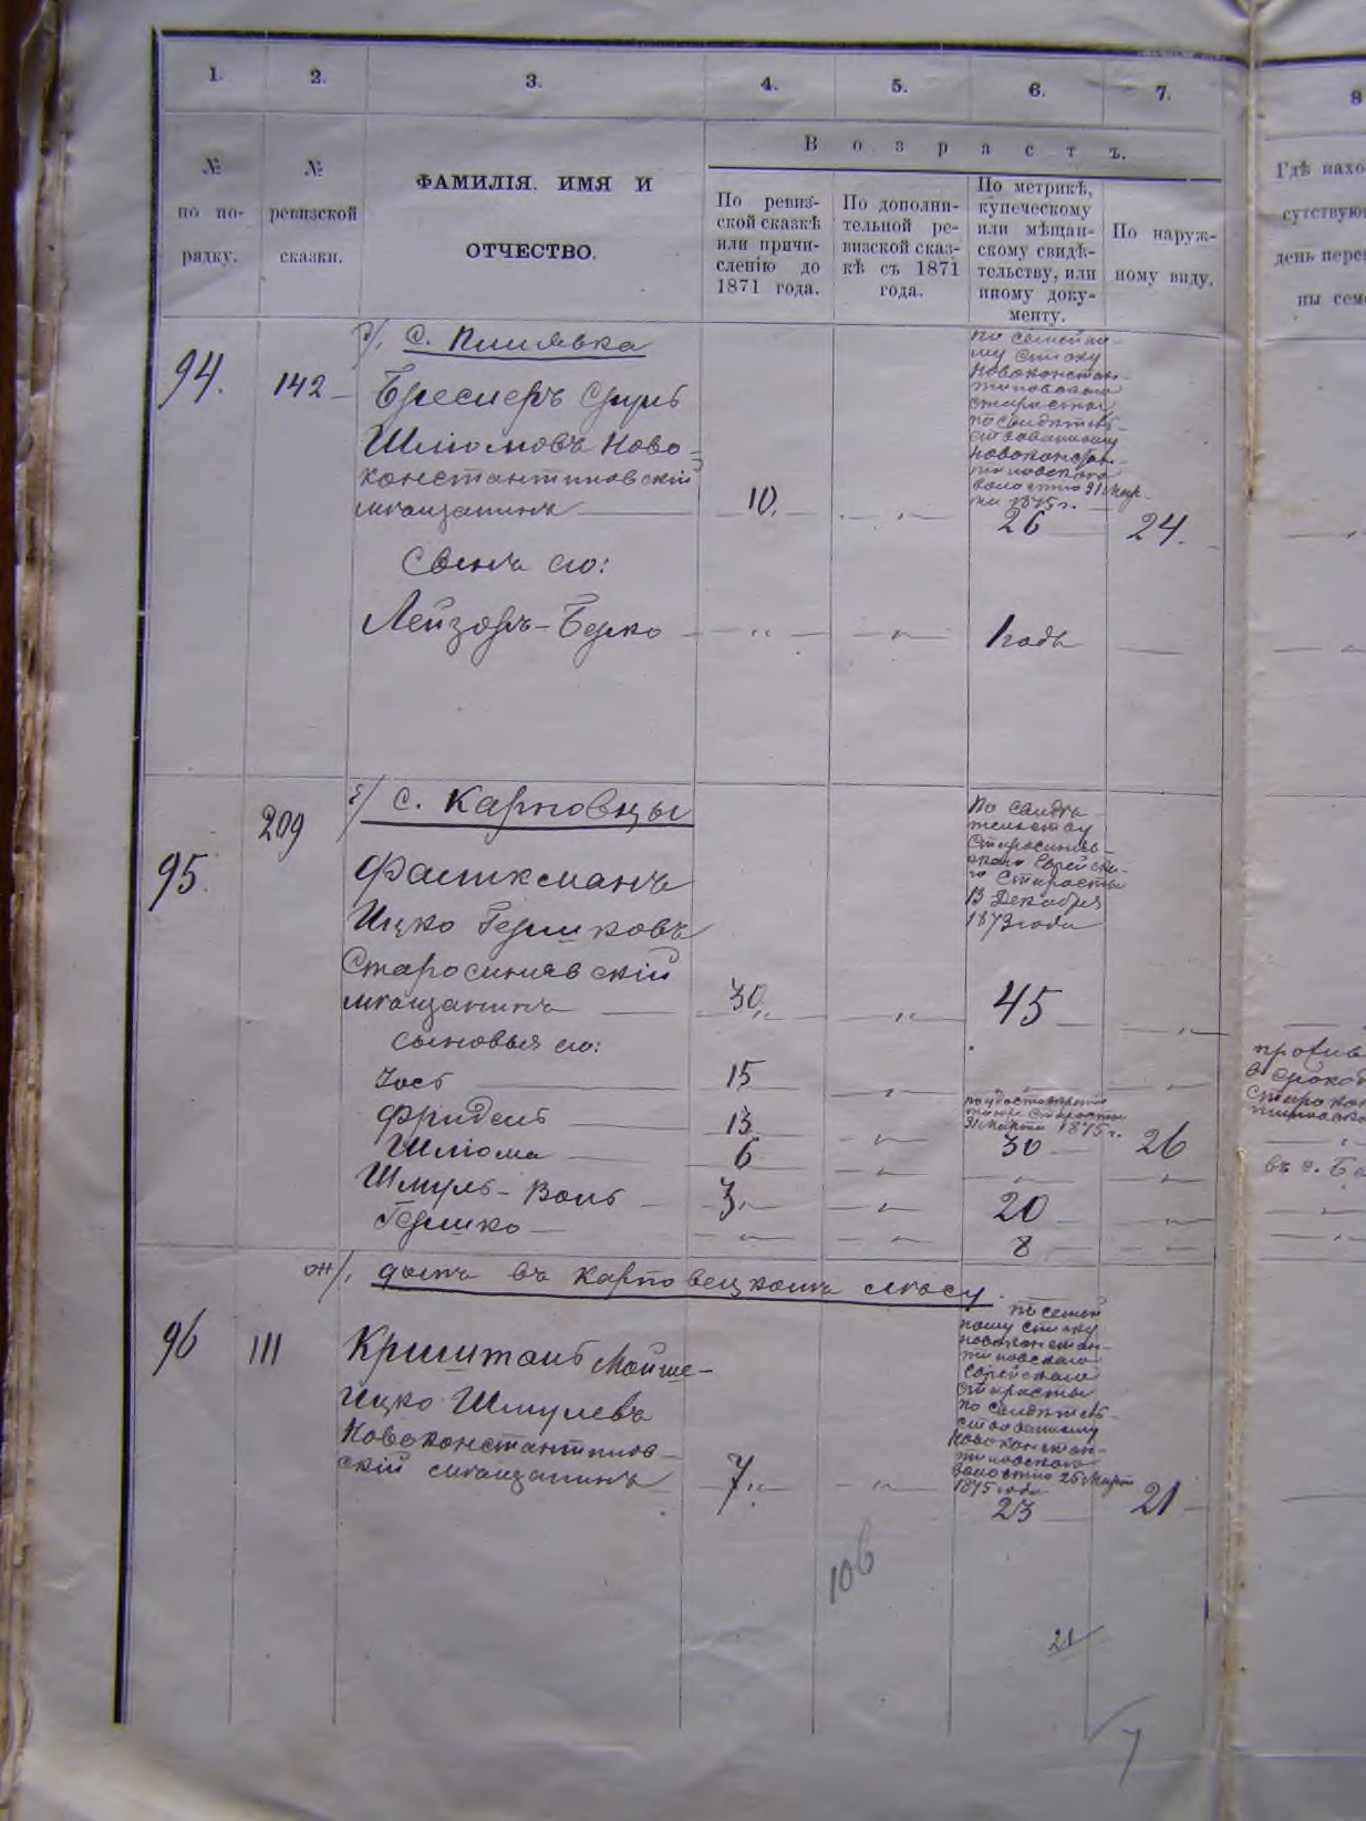 1.
2.
3.
4.
5.
6.
7.
8
№
по по-
рядку.
№
ревизской
сказки.
ФАМИЛІЯ. ИМЯ И
ОТЧЕСТВО.
Возрастъ.
По ревиз-
ской сказкѣ
или причи-
сленію до
1871 года.
По дополни-
тельной ре-
визской сказ-
кѣ съ 1871
года.
По метрикѣ,
купеческому
или мѣщан-
скому свидѣ-
тельству, или
иному доку-
менту.
По наруж-
ному виду.
Гдѣ нахо
сутствую
день пере
ны сем
с. Пилявка
94.
142
Шліомовъ Ново-
константиновскій
мѣщанинъ
10.
По семейно-
му списку
Новоконстан-
тиновскаго
старосты
по свидѣтель-
ствованному
Новоконстан-
тиновскою
волостью 31 Мар-
та 1875 г.
26
24.
Сынъ его:
Лейзоръ-Берко
1 годъ
с. Карповцы
209
95.
Фаликсманъ
Ицко Гершковъ
Старосинявскій
мѣщанинъ
30
По свидѣ-
тельству
Старосиняв-
скаго Еврейска-
го Старосты
13 Декабря
1873 года
45
Сыновья его:
Іось
15
Фридель
13
31 Марта 1875 г.
30
26
Шліома
6
Шмуль-Воль
3
20
Гершко
8
домъ въ Карповецкомъ лѣсу.
96
111
Криштоль Мойше-
Ицко Шмулевъ
Новоконстантинов-
скій мѣщанинъ
7
По семей
ному списку
Новоконстан-
тиновскаго
Еврейскаго
старосты
по свидѣтель-
ствованному
Новоконстан-
тиновскою
волостью 25 Марта
1875 года
23
21
106
21
7